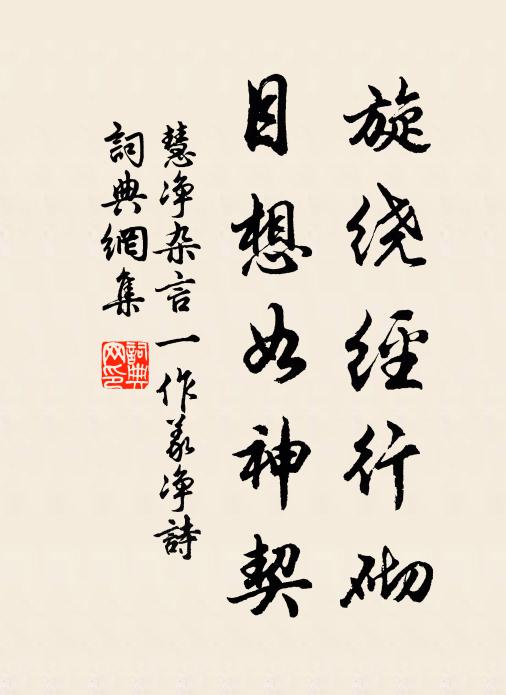 旋绕經行砌
目想如神契
慧净杂言一作义净詩
詞典網集
詞典網印